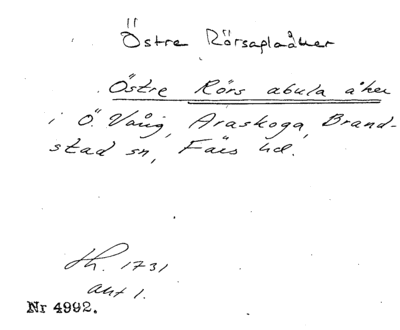 Östre Rörsaplaåker
Östre Rörs abula åker
i Ö. Vång, Araskoga, Brand-
stad sn, Färs hd.
Lh. 1731
akt 1.
Nr 4992.